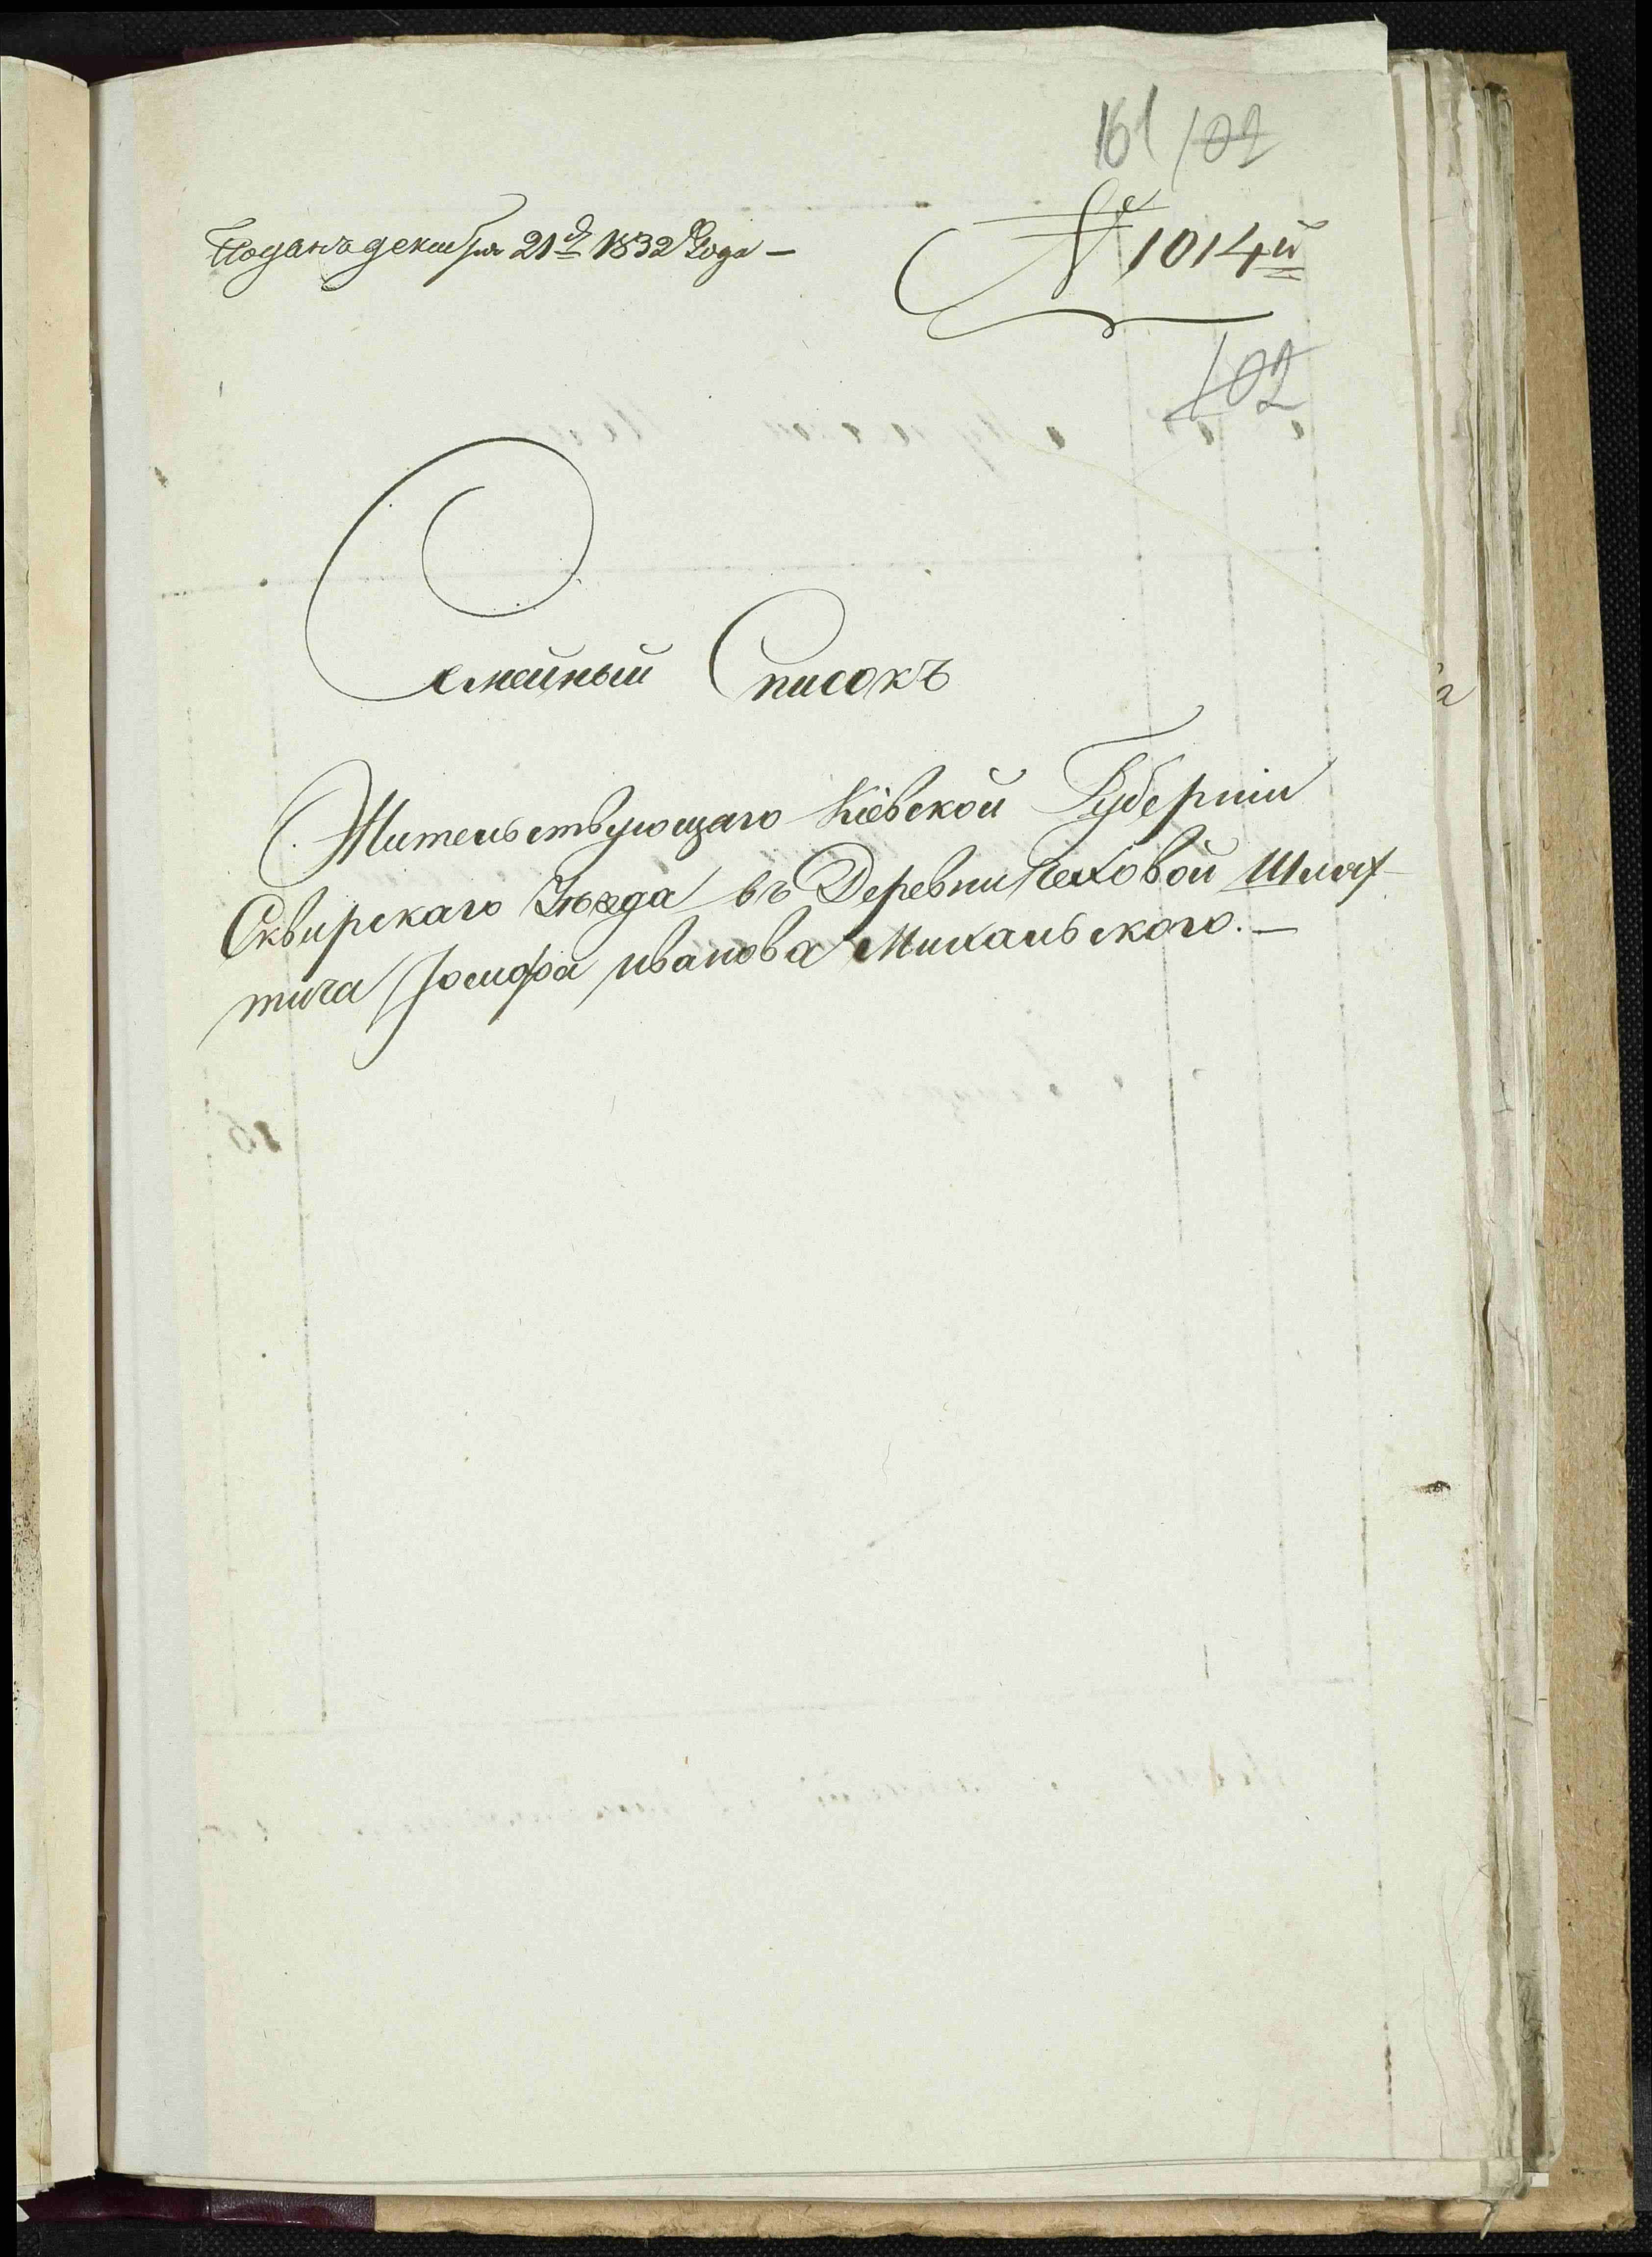 161 102
Поданъ декабря 21д 1832 Года —
№ 1014й
102
Семейный Списокъ
Жительствующаго Кіевской Губерніи
Сквирскаго Уѣзда въ Деревни Чеховой Шлях-
тича Іосифа иванова Михальского. —